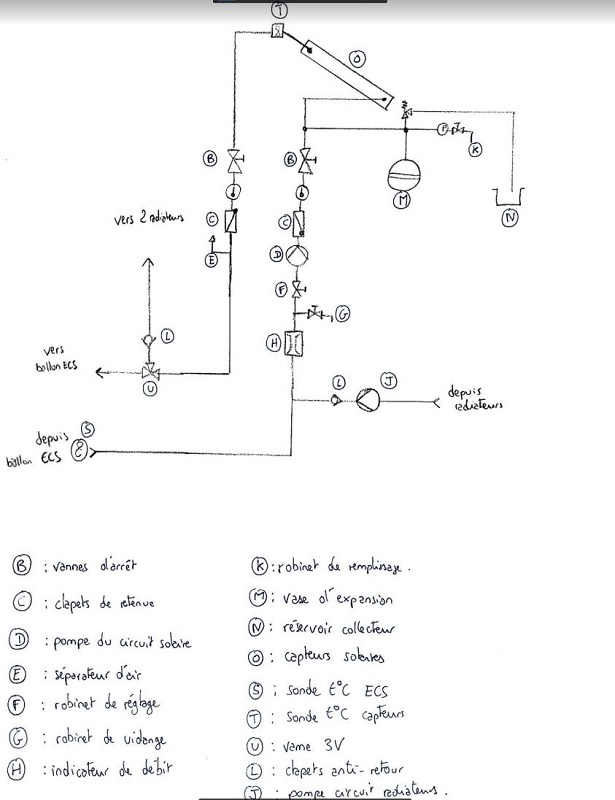 T
O
B
B
P
K
M
N
vers 2 radiateurs
C
C
E
D
F
G
L
H
vers
ballon ECS
U
L
J
depuis
radiateurs
depuis
S
ballon ECS
B : vannes d'arrêt
C : clapets de retenue
D : pompe du circuit solaire
E : séparateur d'air
F : robinet de réglage
G : robinet de vidange
H : indicateur de débit
K : robinet de remplissage.
M : vase d'expansion
N : réservoir collecteur
O : capteurs solaires
S : sonde t°C ECS
T : sonde t°C capteurs
U : vanne 3V
L : clapets anti-retour
J : pompe circuit radiateurs.